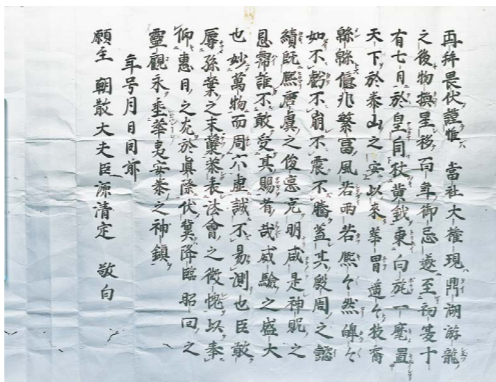 再拝畏伏謹惟 當社大權現鼎湖游龍
之後物換星移百年御忌遂至初夏十
有七日於皇自秋黄鉞東向旄一麾置
天下於泰山之安以來華冑遥々枝裔
緜緜億兆繁富風若雨若熈々然皥々
如不虧不崩不震不騰蓋其殷周之懿
績既熈唐虞之俊悳克明咸是神貺之
恩齎誰不敢受其賜旹哉威驗之盛大
也妙萬物而周六虚誠不易測也臣敢
辱孫葉之末蘋藻表法會之微愧以奉
仰惠日之光於眞際伏冀降臨昭回之
靈觀永垂華夷安泰之神鎮
年号月日同前
願主 朝散大夫臣源清定 敬白